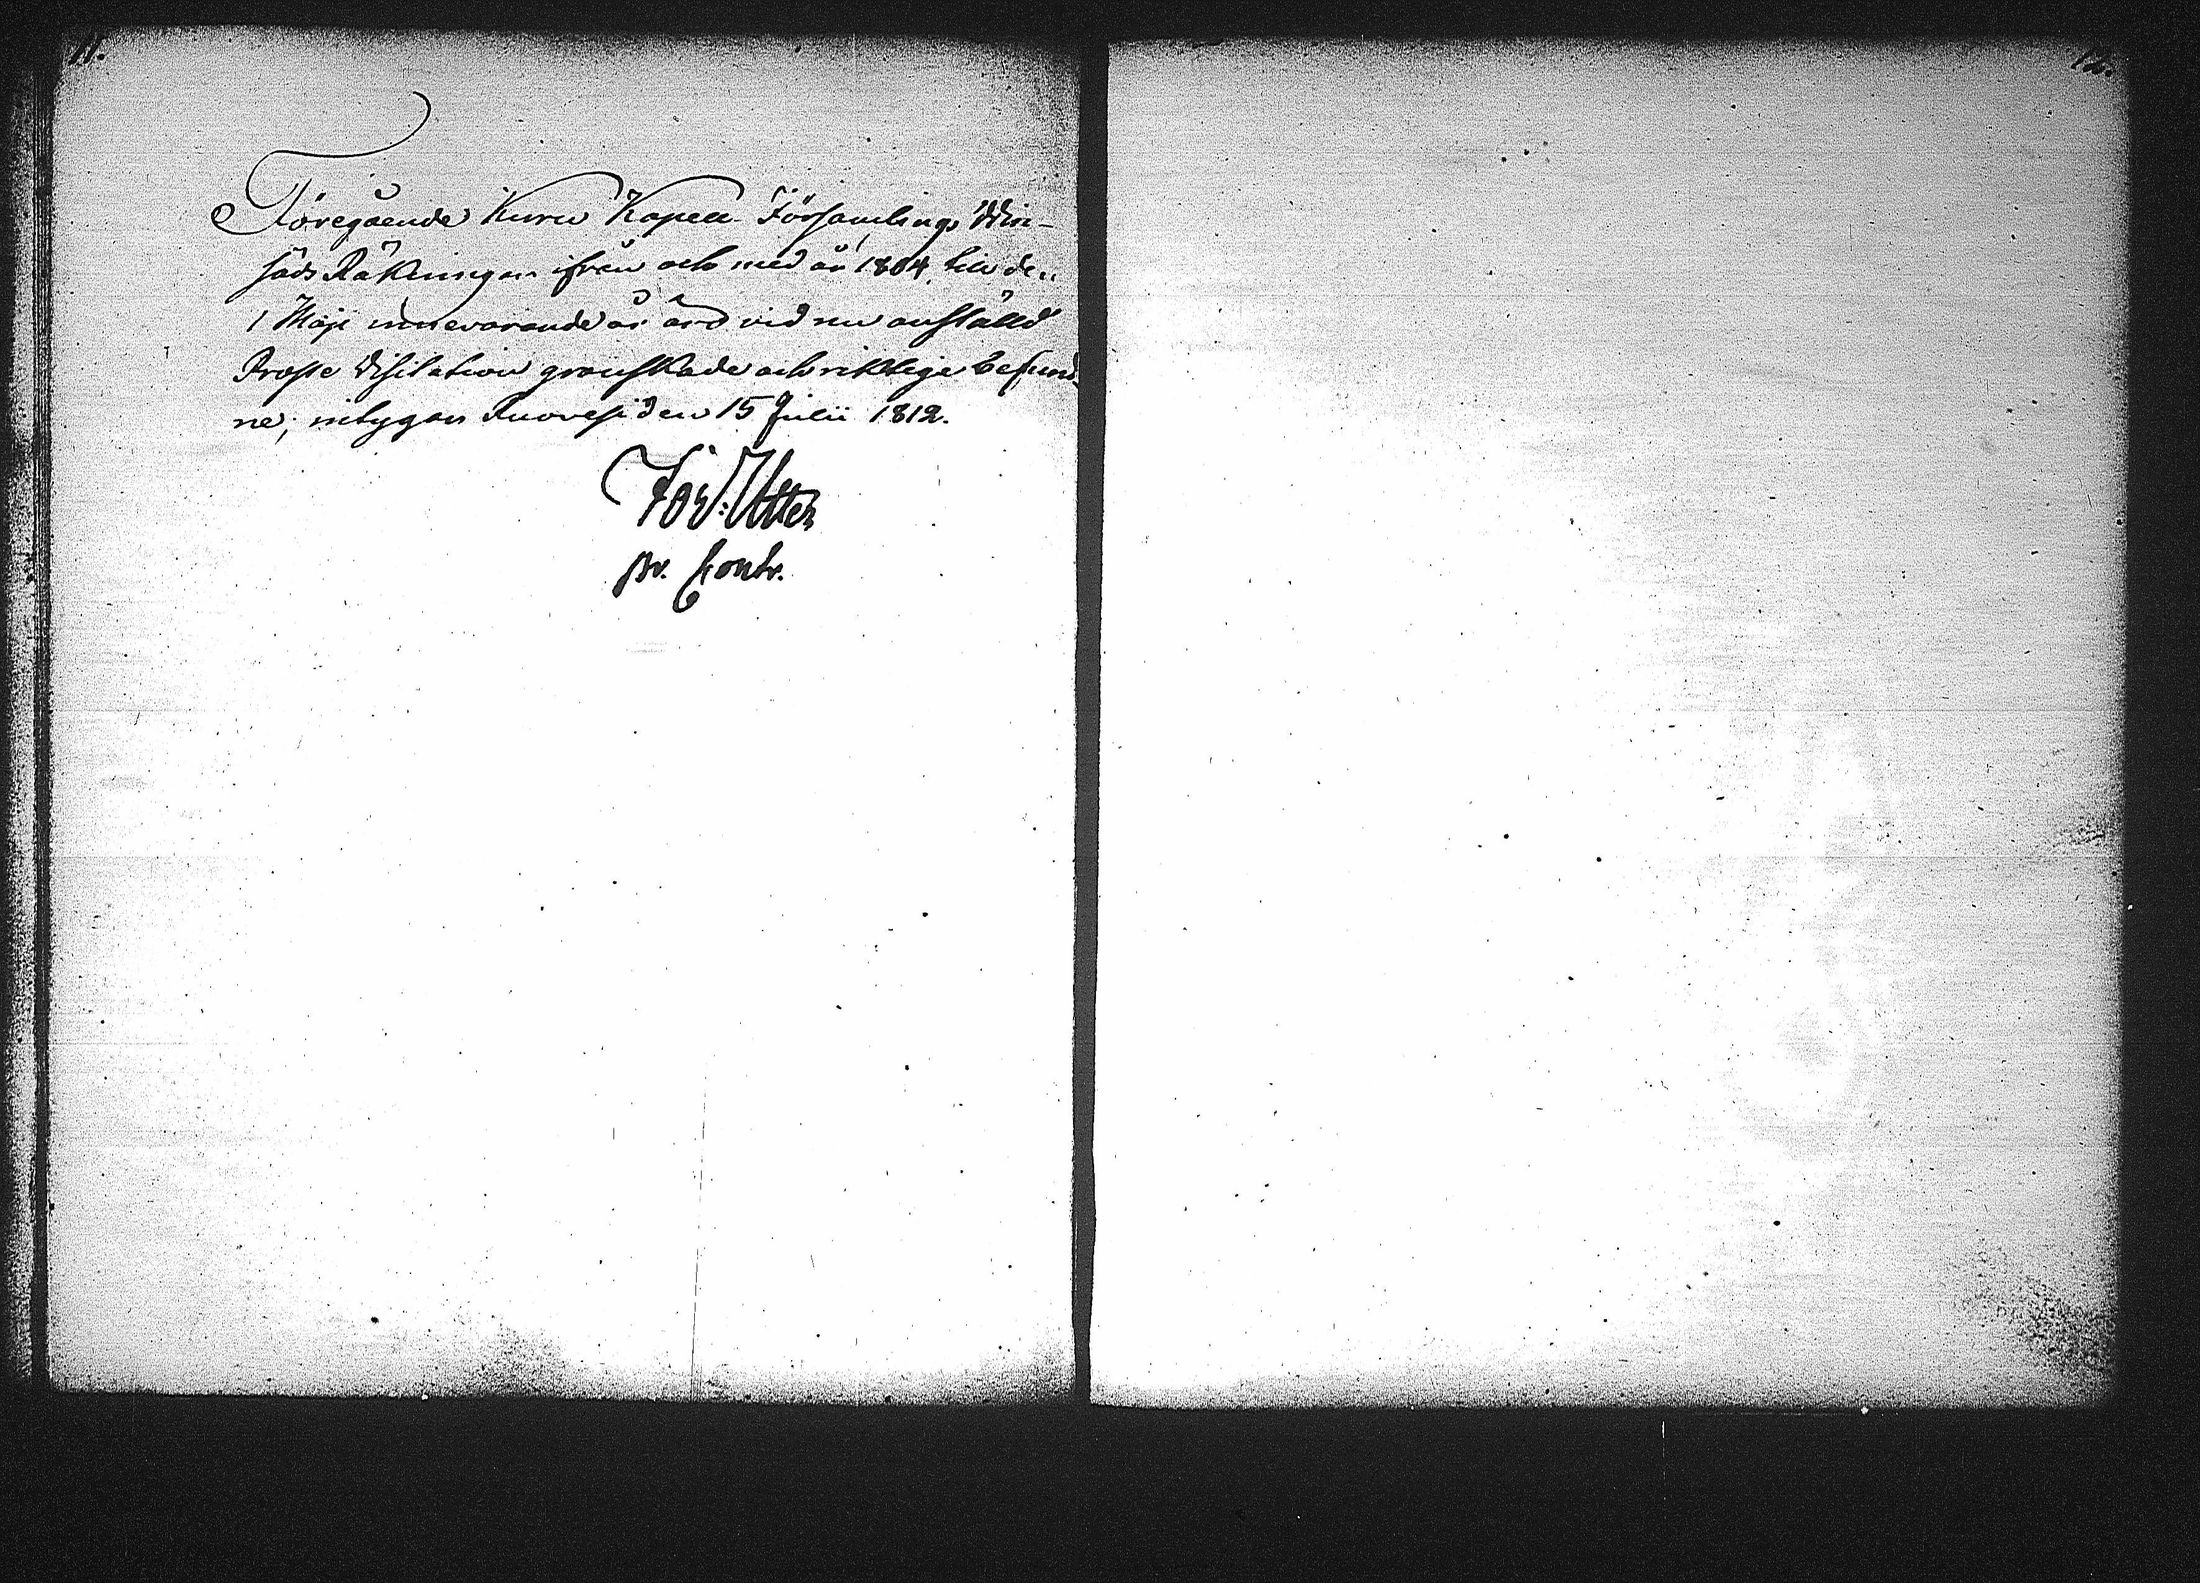 11.
12.
Föregående Kuru Kapell Församlings Win-
säds Räkningar ifrån och med år 1804, till den
1 Maji innevarande år äro vid nu anställd
Prosse Visitation granskade och riktige befund-
ne, intygar Ruovesi den 15 Julii 1812.
pr. Contr.